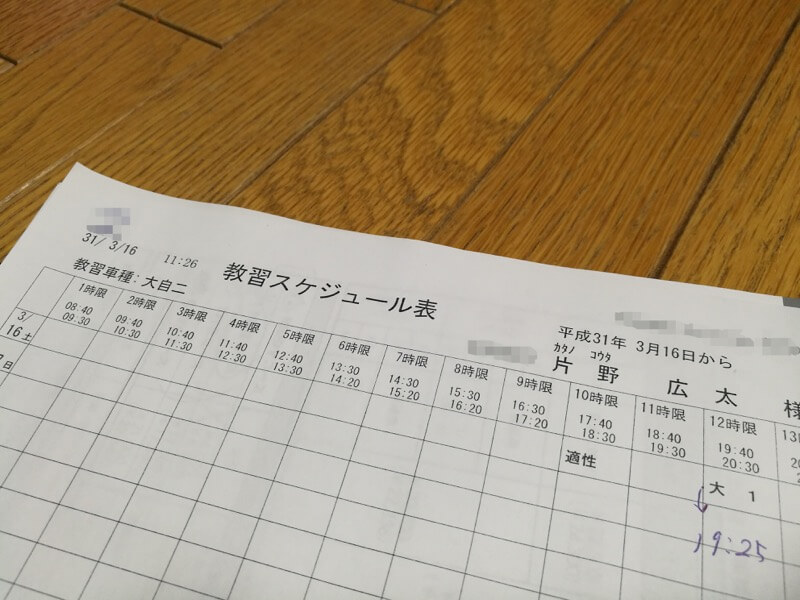 31/ 3/16 11:26
教習車種：大自二
教習スケジュール表
平成31年 3月16日から
カタノ コウタ
片 野 広 太 様
1時限 2時限 3時限 4時限 5時限 6時限 7時限 8時限 9時限 10時限 11時限 12時限
08:40 09:40 10:40 11:40 12:40 13:30 14:30 15:30 16:30 17:40 18:40 19:40
09:30 10:30 11:30 12:30 13:30 14:20 15:20 16:20 17:20 18:30 19:30 20:30
3/
16 土 適性 大 1
日
↓
19:25